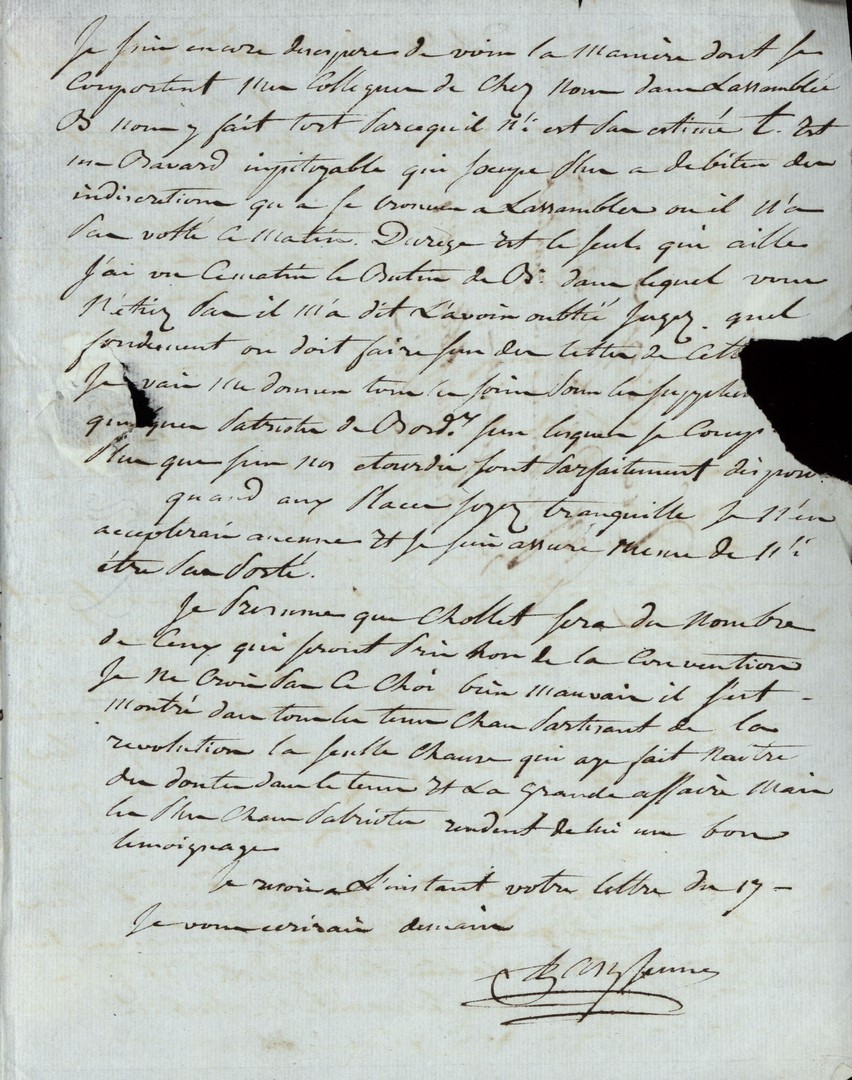 Je suis encore desespere de voir la maniere dont se
comportent nos Collegues de chez nous dans Lassamblée
B nous y fait tort parcequil n'i est pas estimé t. est
un Bavard inpitoyable qui soccupe plus a debiter des
indiscretions qu'a se trouver a Lassamblee ou il n'a
pas votté ce matin. Dureze est le seul qui aille
J'ai vu ce matin le Butin de B. dans lequel vous
n'etiez pas il m'a dit L'avoir oublié jugez quel
fondement on doit faire sur des lettre de cett
Je vais me donner tous les soins pour les supplea
quelques patriotes de Bord.x sur lesquels je comp
plus que sur nos etourdis sont parfaitement dispos
quand aux places soyez tranquille je n'en
accepterai aucune et je suis assuré meme de n'i
être pas porté.
Je presume que Chollet sera du nombre
de ceux qui seront pris hors de la Convention
Je ne crois pas ce choi bien mauvais il s'est
montré dans tous les tems chau partisant de la
revolution la seulle chause qui aye fait naitre
des doutes dans le tems est La grande affaire mais
les plus chaus patriotes rendent de lui un bon
temoignage
Je recois a L'instant votre lettre du 17
Je vous ecrirai demain